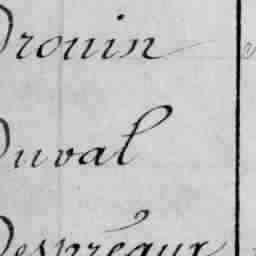 Drouin
Duval
Despréaux